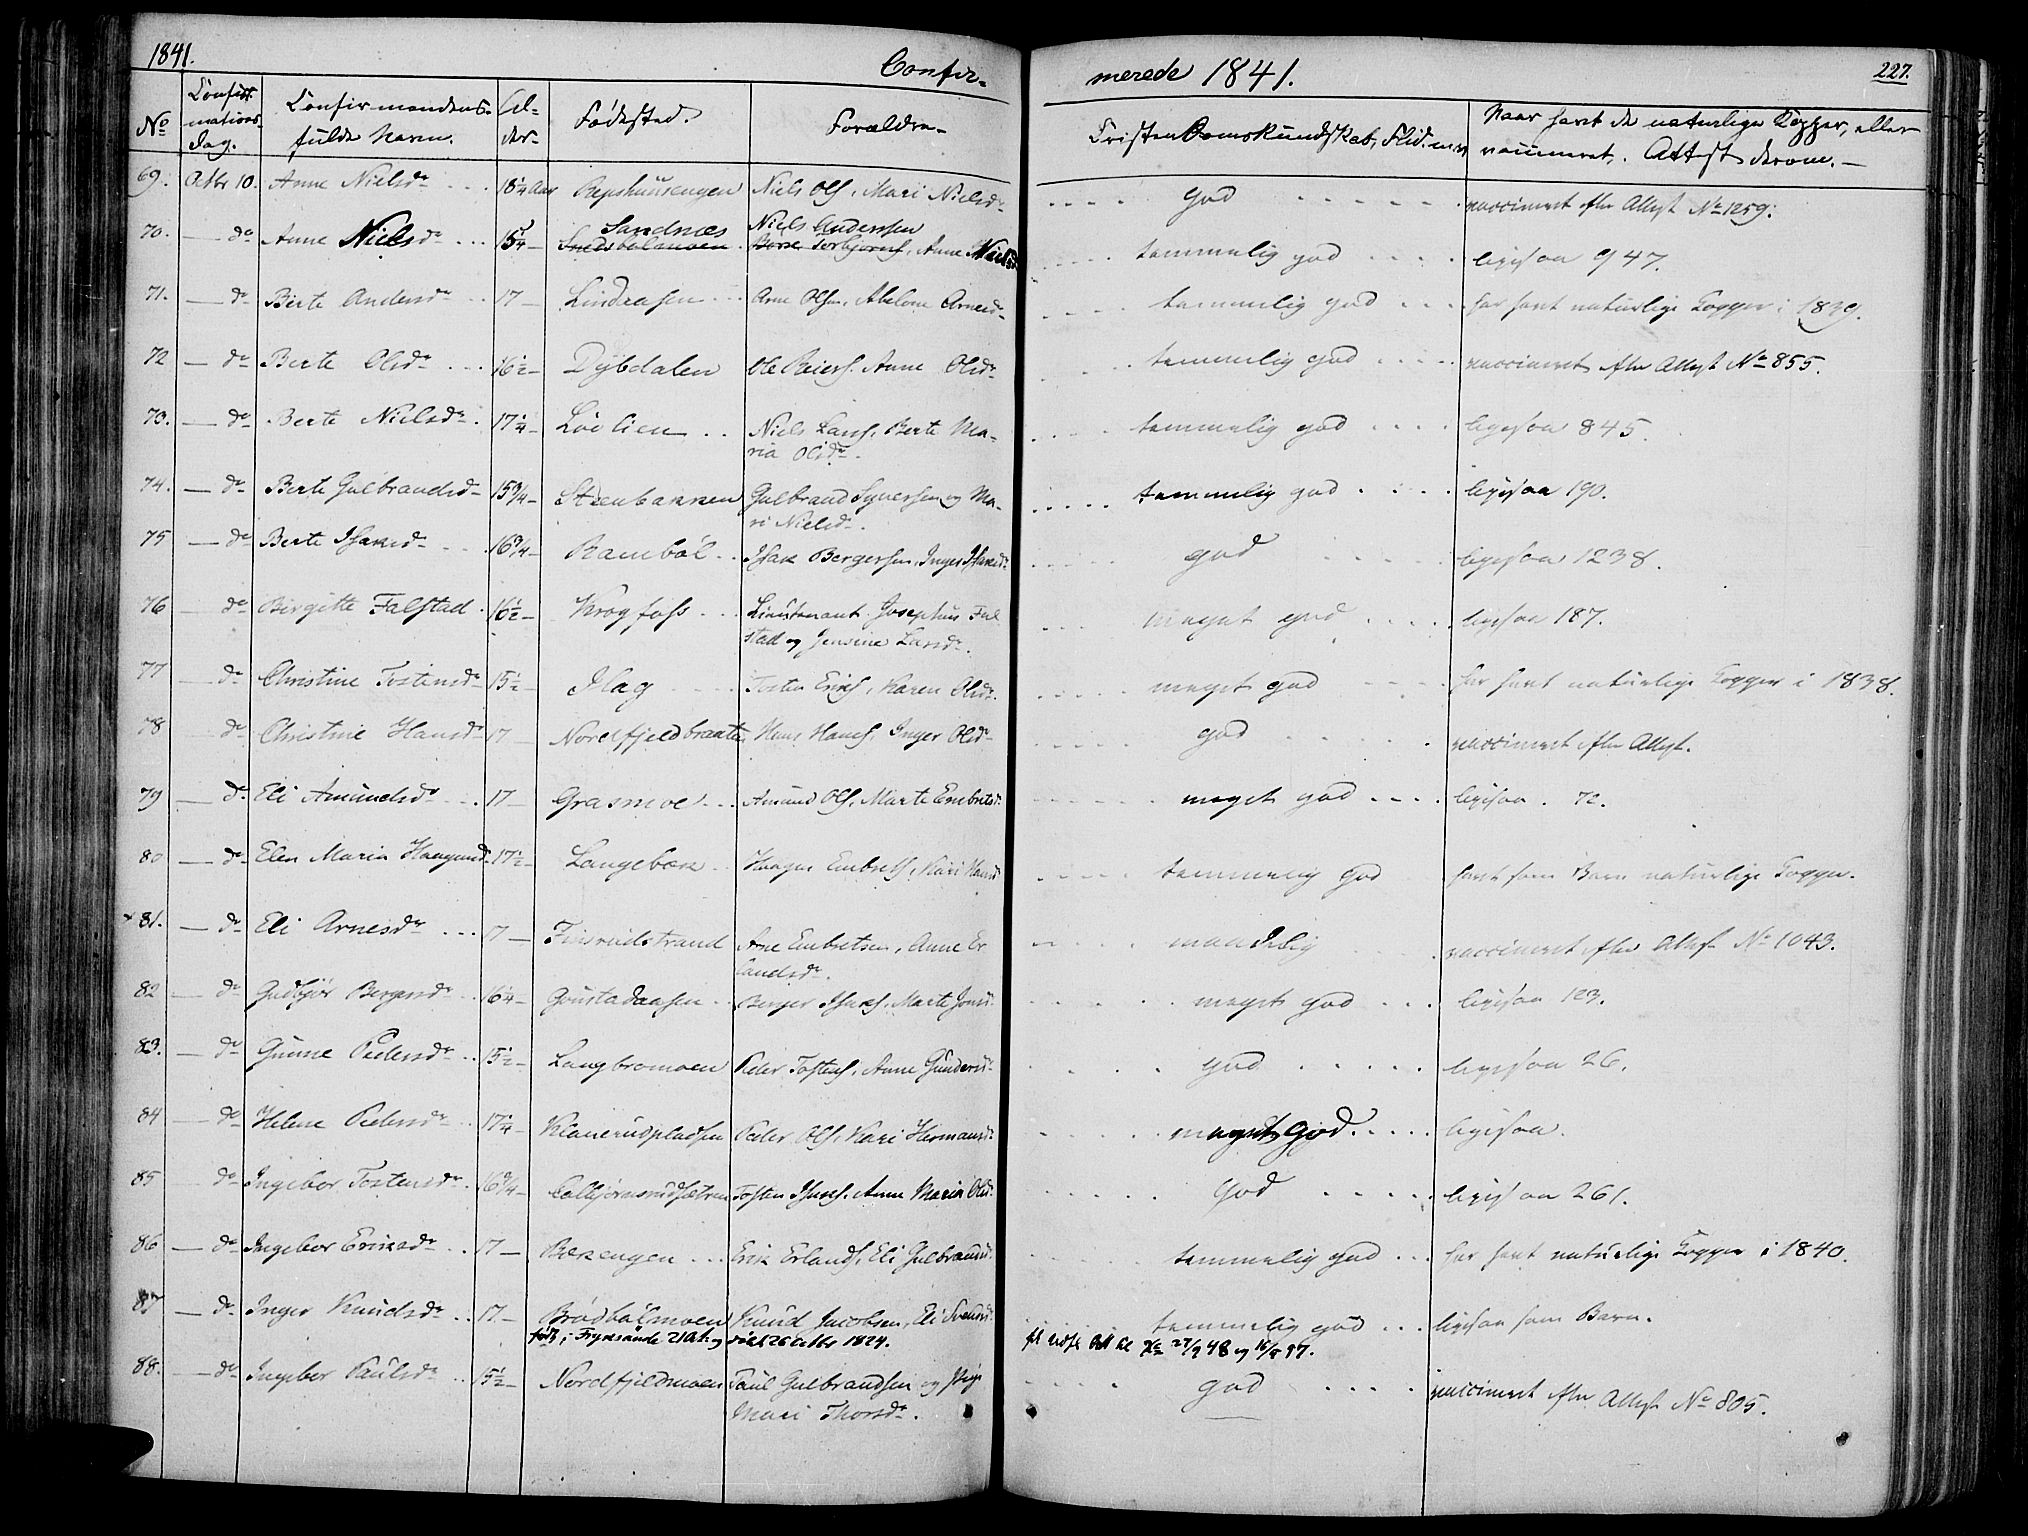 1841. Confir- merede 1841. 227.
No Confir- mations- Dag. Confirmandens fulde Navn. Al- der. Fødested. Forældre. Christendomskundskab, Flid. Naar havt de naturlige Kopper, eller
vaccineret. Attest derom.
69. Octbr 10. Anne Nielsdr 18¼ Aar Niels Ols, Mari Nielsdr god vaccineret efter Attest No 1259.
70. — do Anne Nielsdr 15¼ — Sandnæs Niels Anderssen
Anne temmelig god ligesaa 947.
71. — do Berte Andersdr 17 — Lindaasen Arne Olsen, Abelone Arnesdr temmelig god har havt naturlige Kopper i 1839.
72 — do Berte Olsdr 16½ — Dybdalen Ole Reiers. Anne Olsdr temmelig god vaccineret efter Attest No 855.
73. — do Berte Nielsdr 17¼ — Løvlien Niels Lars. Berte Ma-
ria Olsdr. temmelig god ligesaa 845.
74. — do Berte Gulbrandsd 15¾ — Steenbakken Gulbrand Syversen og Ma-
ri Nielsdr. temmelig god ligesaa 190.
75 — do Berte Isaksdr 16¾ — Rambøl Isak Bergersen, Inger Isaksdr god ligesaa 1238.
76 — do Birgitte Falstad 16½ — Krogfoss Lieutenant Josephus Fal-
stad og Jensine Larsdr. meget god ligesaa 187.
77 — do Christine Tostensdr 15½ — Ilag Tosten Eriks. Karen Olsdr. meget god har havt naturlige Kopper i 1838.
78 do Christine Hansdr 17 — Nordfjeldbraaten Hans Hans. Inger Olsdr god vaccineret efter Attest.
79 — do Eli Amundsdr 17 — Grasmoe Amund Ols, Marte Embretsdr meget god ligesaa 72.
80 — do Elen Maria Haagensd 17½ — Langebæk Haagen Embrets, Kari Hansd temmelig god havt som Barn naturlige Kopper.
81. — do Eli Arnesdr 17 — Finsrudstrand Arne Embretsen, Anne Er-
landsdr. maadelig vaccineret efter Attest No 1043.
82 — do Gudbjør Bergersdr 16¼ — Goustadaasen Berger Isaks. Marte Jonsdr meget god ligesaa 123.
83. — do Gunne Pedersdr 15½ — Langbromoen Peder Tostens. Anne Gundersdr god ligesaa 26.
84 — do Helene Pedersdr 17¼ — Klanerudpladsen Peder Ols. Kari Hermansdr meget god ligesaa.
85 do Ingebor Tostensdr 16¾ — Tosten Isaks. Anne Maria Olsdr god ligesaa 261.
86 — do Ingebor Eriksdr 17 — Bekengen Erik Erlands, Eli Gulbrandsdr temmelig god har havt naturlige Kopper i 1840.
87 — do Inger Knudsdr 17 — Brødbølmoen Knud Jacobsen, Eli Svensdr temmelig god ligesaa som Barn.
født i Fryksände 21 Oct. og døbt 26 Octbr 1824. 27/9 48
88. — do Ingebor Paulsdr 15½ — Nordfjeldmoen Paul Gulbrandsen og Pige
Mari Thorsdr. god vaccineret efter Attest No 805.